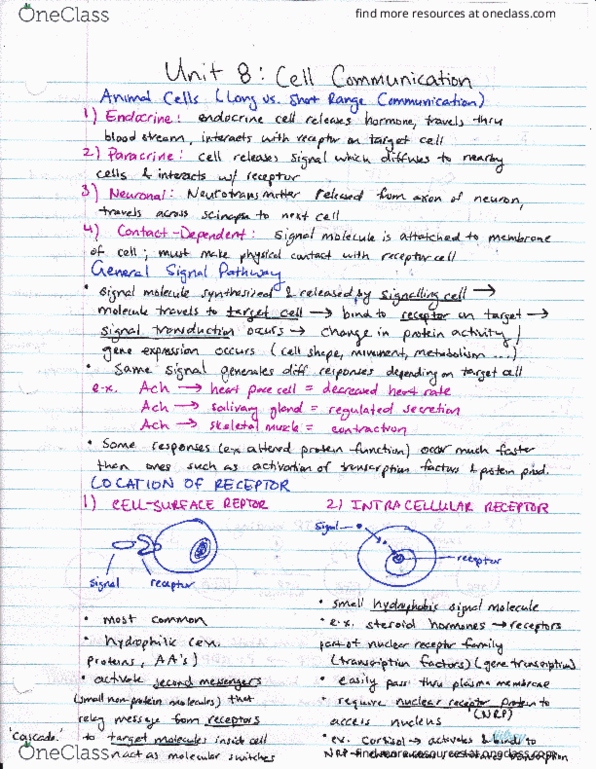 OneClass
find more resources at oneclass.com
Unit 8: Cell Communication
Animal Cells (Long vs. Short Range Communication)
1) Endocrine: endocrine cell releases hormone, travels thru
blood stream, interacts with receptor on target cell
2) Paracrine: cell releases signal which diffuses to nearby
cells & interacts w/ receptor
3) Neuronal: Neurotransmitter released from axon of neuron,
travels across scinapse to next cell
4) Contact-Dependent: signal molecule is attatched to membrane
of cell; must make physical contact with receptor cell
General Signal Pathway
• signal molecule synthesized & released by signalling cell →
molecule travels to target cell → bind to receptor on target →
signal transduction occurs → change in protein activity /
gene expression occurs (cell shape, movement, metabolism ...)
• Same signal generates diff. responses depending on target cell
ex. Ach → heart pace cell = decreased heart rate
Ach → salivary gland = regulated secretion
Ach → skeletal muscle = contraction
• Some responses (ex altered protein function) occur much faster
than ones such as activation of transcription factors & protein prod.
LOCATION OF RECEPTOR
1) CELL-SURFACE REPTOR
2) INTRACELLULAR RECEPTOR
signal
receptor
signal
receptor
• most common
• hydrophilic (ex.
proteins, AA's)
• activate second messengers
(small non-protein molecules) that
relay message from receptors
'cascade.' to target molecules inside cell
act as molecular switches
• small hydrophobic signal molecule
• ex. steroid hormones → receptors
part of nuclear receptor family
(transcription factors) (gene transcription)
• easily pass thru plasma membrane
• require nuclear receptor protein to
(NRP)
access nucleus
• ex. Cortisol → activates & binds to
NRP
OneClass
find more resources at oneclass.com